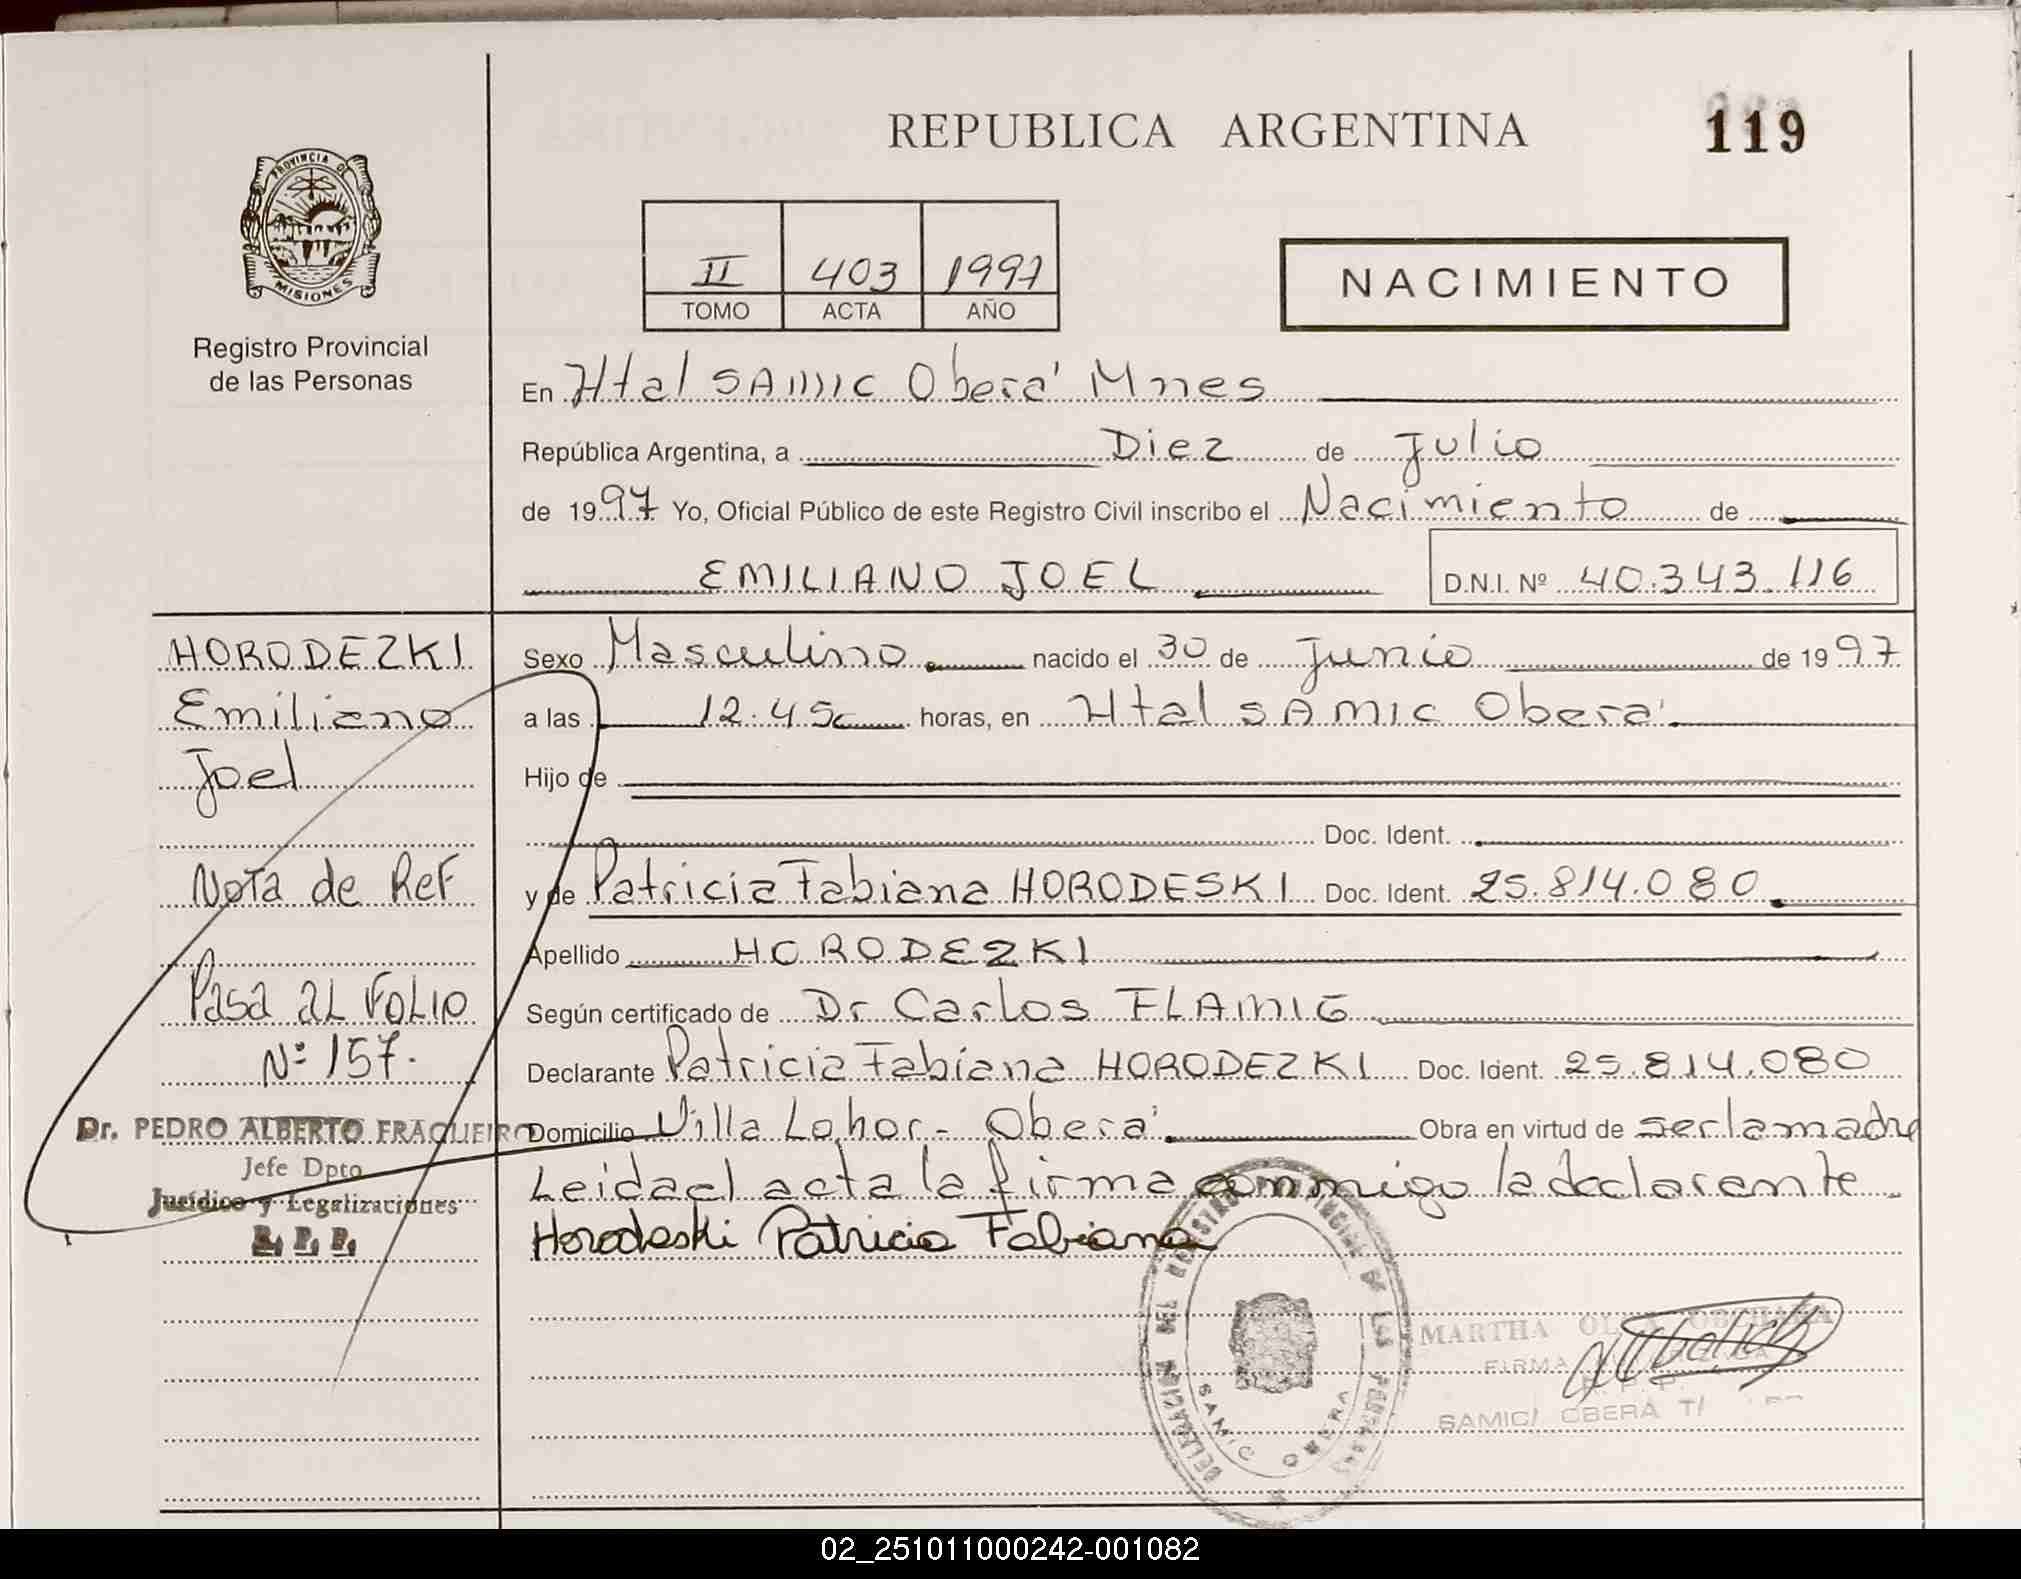 REPUBLICA ARGENTINA
119
PROVINCIA DE
MISIONES
Registro Provincial
de las Personas
II 403 1997
TOMO ACTA AÑO
NACIMIENTO
En Htal SAMIC Oberá Mnes
República Argentina, a Diez de Julio
de 1997 Yo, Oficial Público de este Registro Civil inscribo el Nacimiento de
EMILIANO JOEL D.N.I. Nº 40.343.116
HORODEZKI
Emiliano
Joel
Nota de Ref
Pasa al Folio
Nº 157.
Dr. PEDRO ALBERTO FRAQUEIRO
Jefe Dpto
Jurídico y Legalizaciones
R. P. P.
Sexo Masculino nacido el 30 de Junio de 1997
a las 12.45 horas, en Htal SAMIC Oberá
Hijo de
Doc. Ident.
y de Patricia Fabiana HORODESKI Doc. Ident. 25.814.080
Apellido HORODEZKI
Según certificado de Dr Carlos FLAMIG
Declarante Patricia Fabiana HORODEZKI Doc. Ident. 25.814.080
Domicilio Villa Lohor - Oberá Obra en virtud de ser la madre
Leida el acta la firma conmigo la declarante
Horodeski Patricia Fabiana
DELEGACION DEL REGISTRO PROVINCIAL DE LAS PERSONAS
SAMIC OBERA
MARTHA OLGA
FIRMA
R. P. P.
SAMIC/ OBERA
02_251011000242-001082